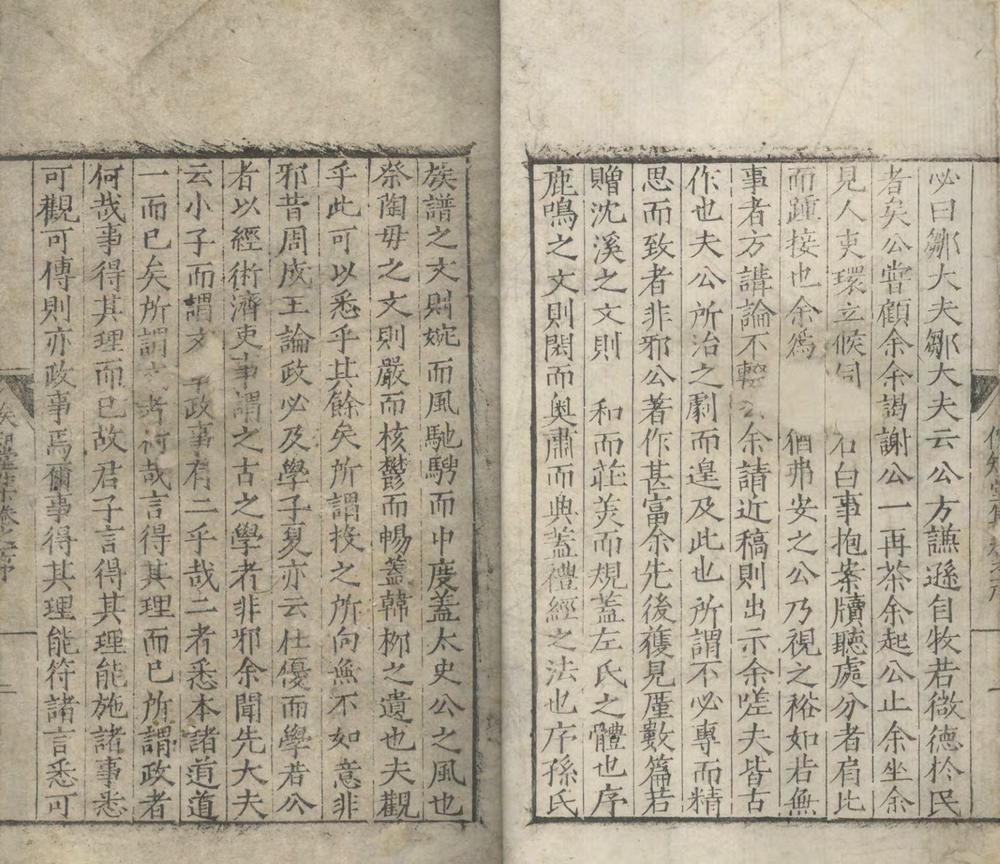 必曰鄒大夫鄒大夫云公方謙遜自牧若微德於民
者矣公嘗顧余余謁謝公一再茶余起公止余坐余
見人吏環立候伺 白事抱案牘聽處分者肩比
而踵接也余爲 猶弗安之公乃視之裕如若無
事者方講論不輟 余請近稿則出示余嗟夫皆古
作也夫公所治之劇而遑及此也所謂不必專而精
思而致者非邪公著作甚富余先後獲見厪數篇若
贈沈溪之文則 和而莊美而規蓋左氏之體也序
鹿鳴之文則閎而奥肅而典蓋禮經之法也序孫氏
族譜之文則婉而風馳騁而中度蓋太史公之風也
祭陶毋之文則嚴而核鬱而暢蓋韓柳之遺也夫觀
乎此可以悉乎其餘矣所謂投之所向無不如意非
邪昔周成王論政必及學子夏亦云仕優而學若公
者以經術濟吏事謂之古之學者非邪余聞先大夫
云小子而謂文 政事有二乎哉二者悉本諸道道
一而已矣所謂 者何哉言得其理而已所謂政者
何哉事得其理而已故君子言得其理能施諸事悉
可觀可傳則亦政事焉爾事得其理能符諸言悉可